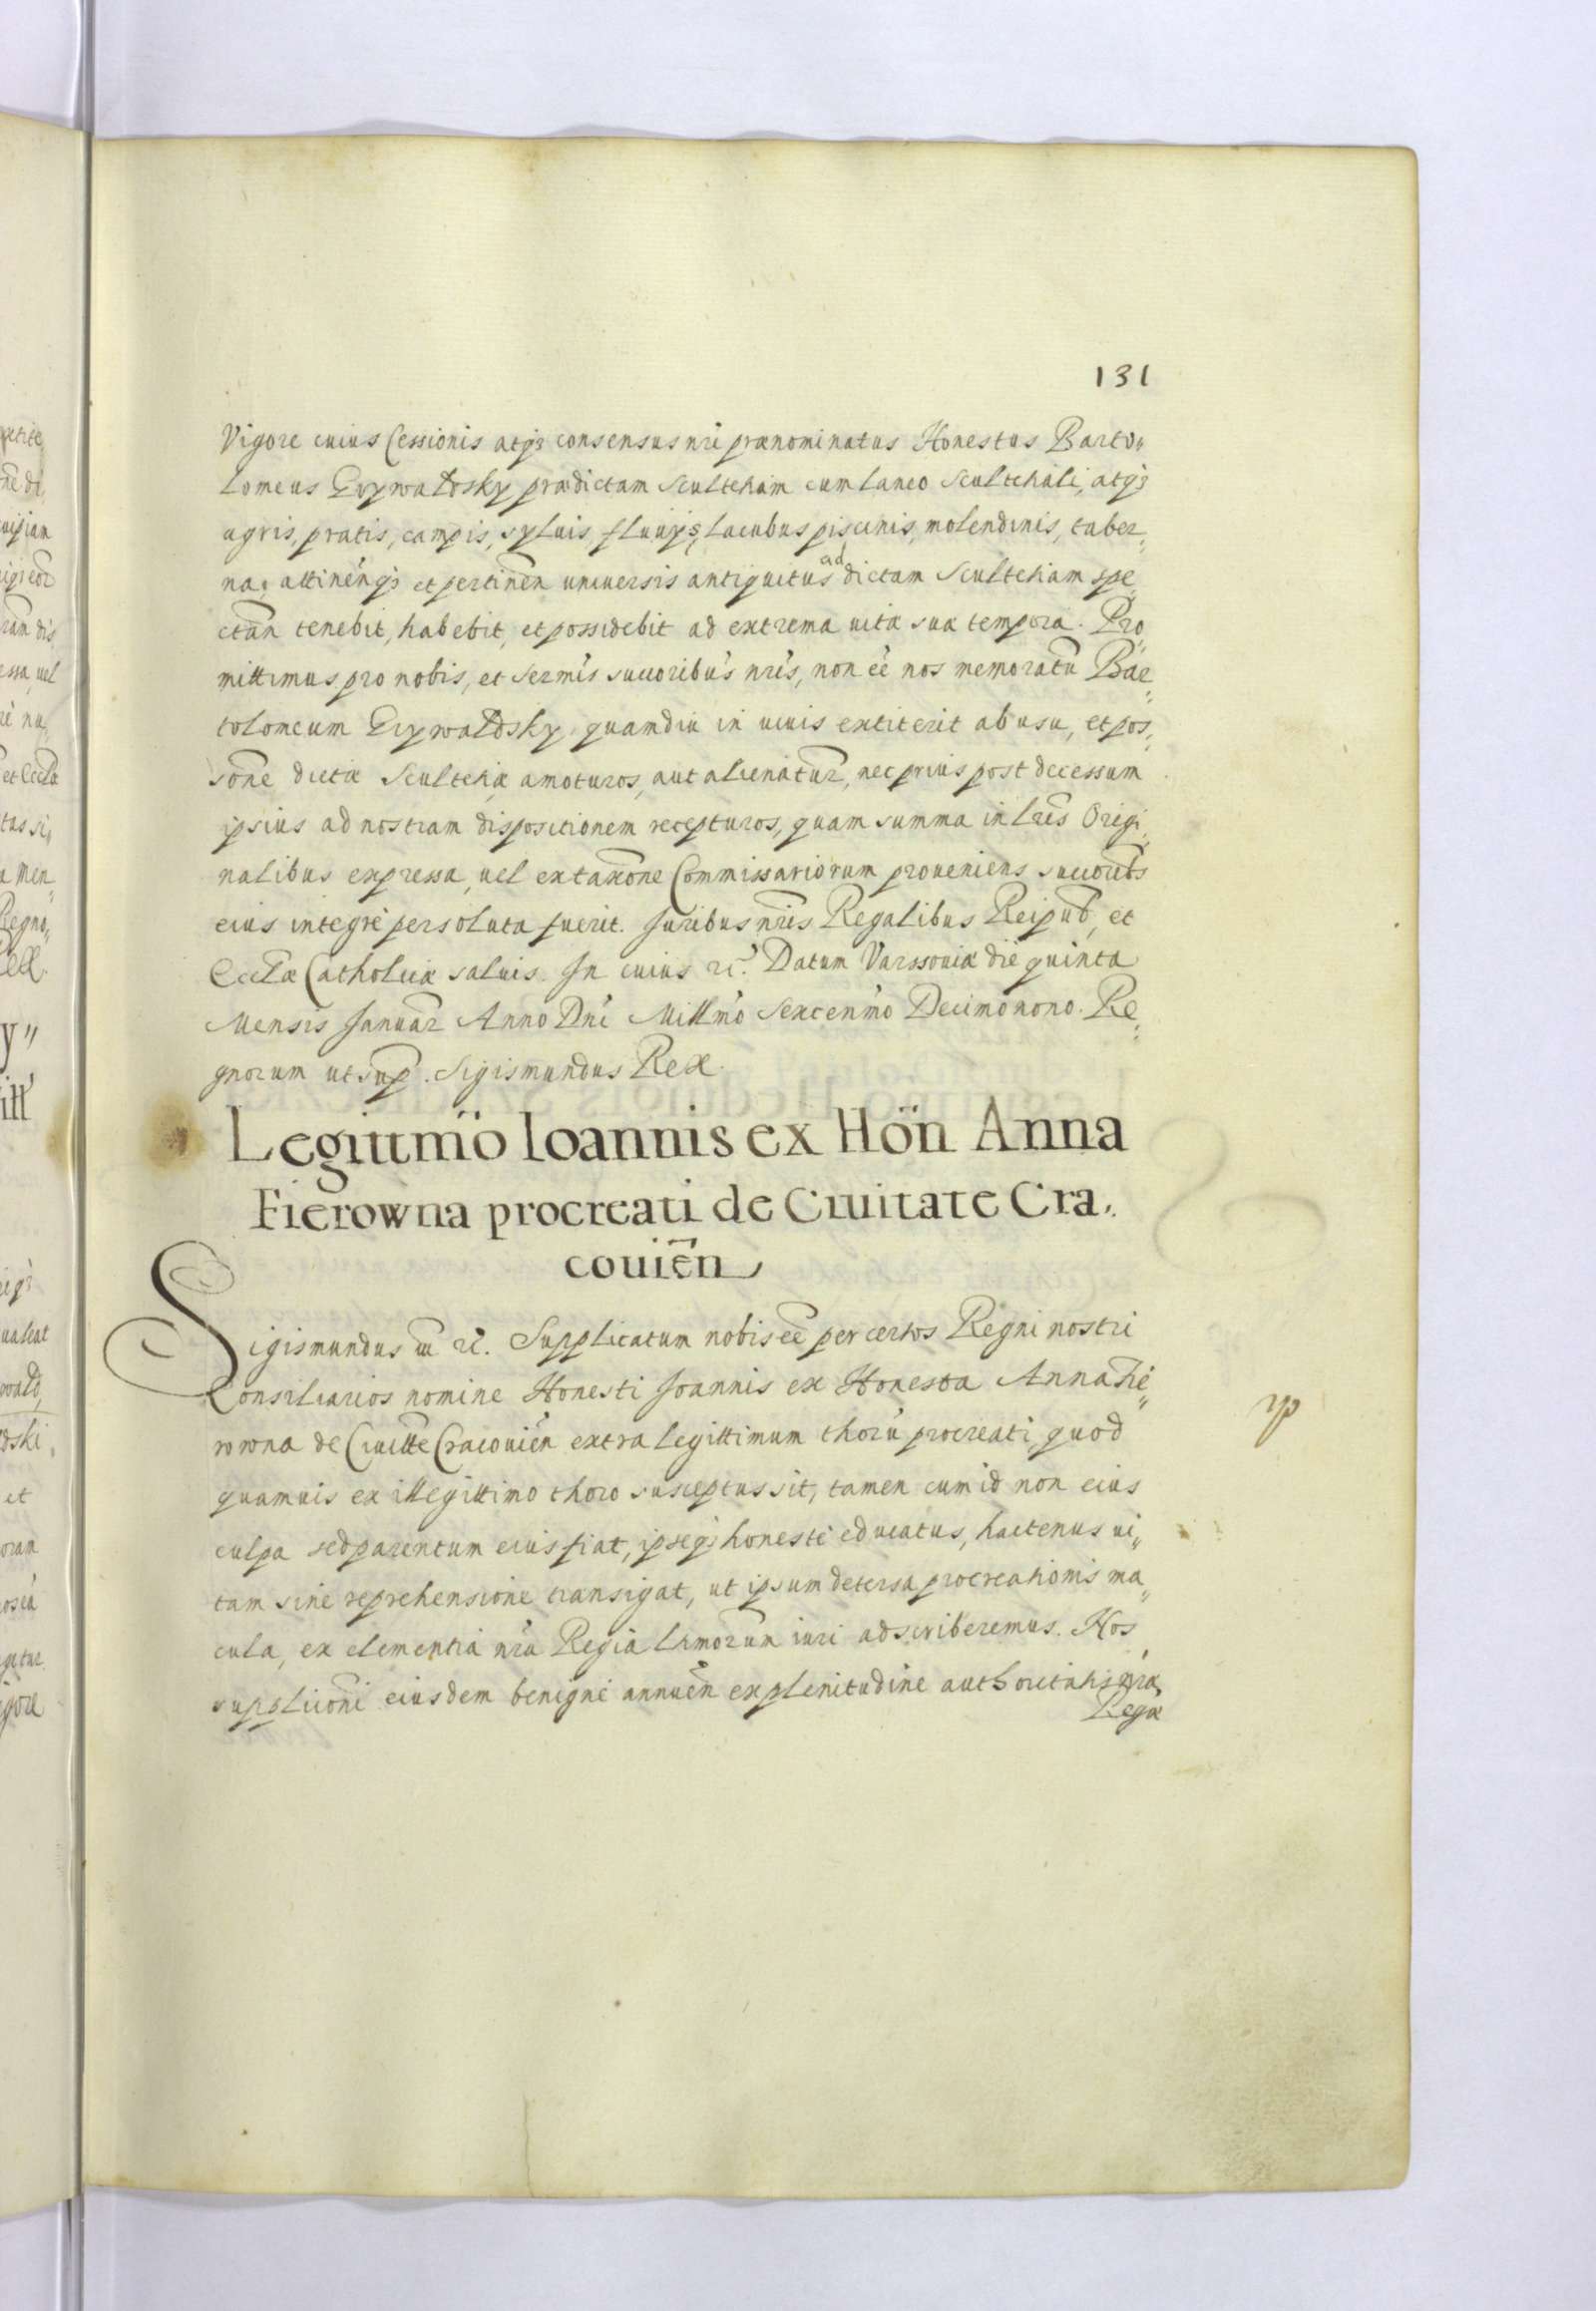 131
Vigore cuius Cessionis atq3 consensus nri prænominatus Honestus Barto„
lomeus Grywałdsky prædictam Scultetiam cum laneo Scultetiali, atq3
agris, pratis, campis, syluis, fluuijs, lacubus piscinis, molendinis, taber„
na, attinen̄q3 et pertinen̄ uniuersis antiquitus ad dictam Scultetiam spe„
ctān tenebit, habebit, et possidebit ad extrema uitæ suæ tempora. Pro„
mittimus pro nobis, et Sermis succoribus nris, non ēē nos memoratū Bar„
tolomeum Grywałdsky quamdiu in uiuis extiterit ab usu, et pos„
sone dictæ Scultetiæ amoturos, aut alienatur, nec prius post decessum
ipsius ad nostram dispositionem recepturos, quam summa in Lris Origi„
nalibus expressa, uel ex taxone Commissariorum proueniens succoribs
eius integrè persoluta fuerit. Juribus nris Regalibus Reipub, et
Ecclæ Catholicæ saluis. In cuius rei. Datum Varssouiæ die quinta
Mensis Januar Anno Dni Millmo Sexcenmo Decimonono. Re„
gnorum ut sup. Sigismundus Rex.
Legittmo Ioannis ex Hon̄ Anna
Fierowna procreati de Ciuitate Cra„
couien̄
Sigismundus III rc. Supplicatum nobis ēē per certos Regni nostri
Consiliarios nomine Honesti Joannis ex Honesta Anna Fie„
rowna de Ciuitte Cracouien̄ extra legittimum thorū procreati, quod
quamuis ex illegittimo thoro susceptus sit, tamen cum id non eius
culpa sed parentum eius fiat, ipseq3 honestè educatus, hactenus ui„
tam sine reprehensione transigat, ut ipsum detersa procreationis ma„
cula, ex clementia nra Regia Ltmorum iuri adscriberemus. Nos
supplicioni eiusdem benignè annuen̄ ex plenitudine authoritatis nræ
Regiæ